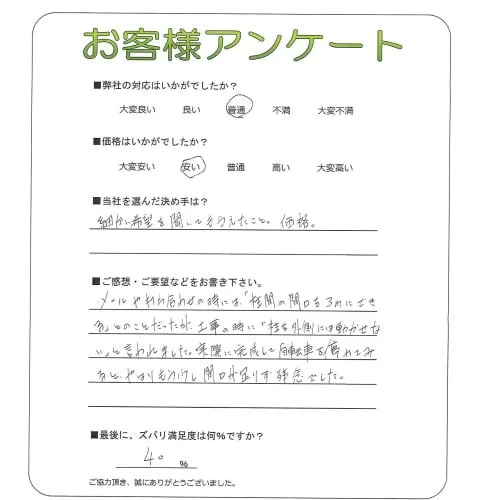 お客様アンケート
■弊社の対応はいかがでしたか？
大変良い 良い 普通 不満 大変不満
■価格はいかがでしたか？
大変安い 安い 普通 高い 大変高い
■当社を選んだ決め手は？
細かい希望を聞いてもらえたこと。価格。
■ご感想・ご要望などをお書き下さい。
メールやお打合わせの時には、「柱間の間口を3mにでき
る」とのことだったが、工事の時に「柱を外側には動かせな
い」と言われました。実際に完成して自転車を停めてみ
ると、やはりもう少し間口が足りず残念でした。
■最後に、ズバリ満足度は何％ですか？
40 ％
ご協力頂き、誠にありがとうございました。